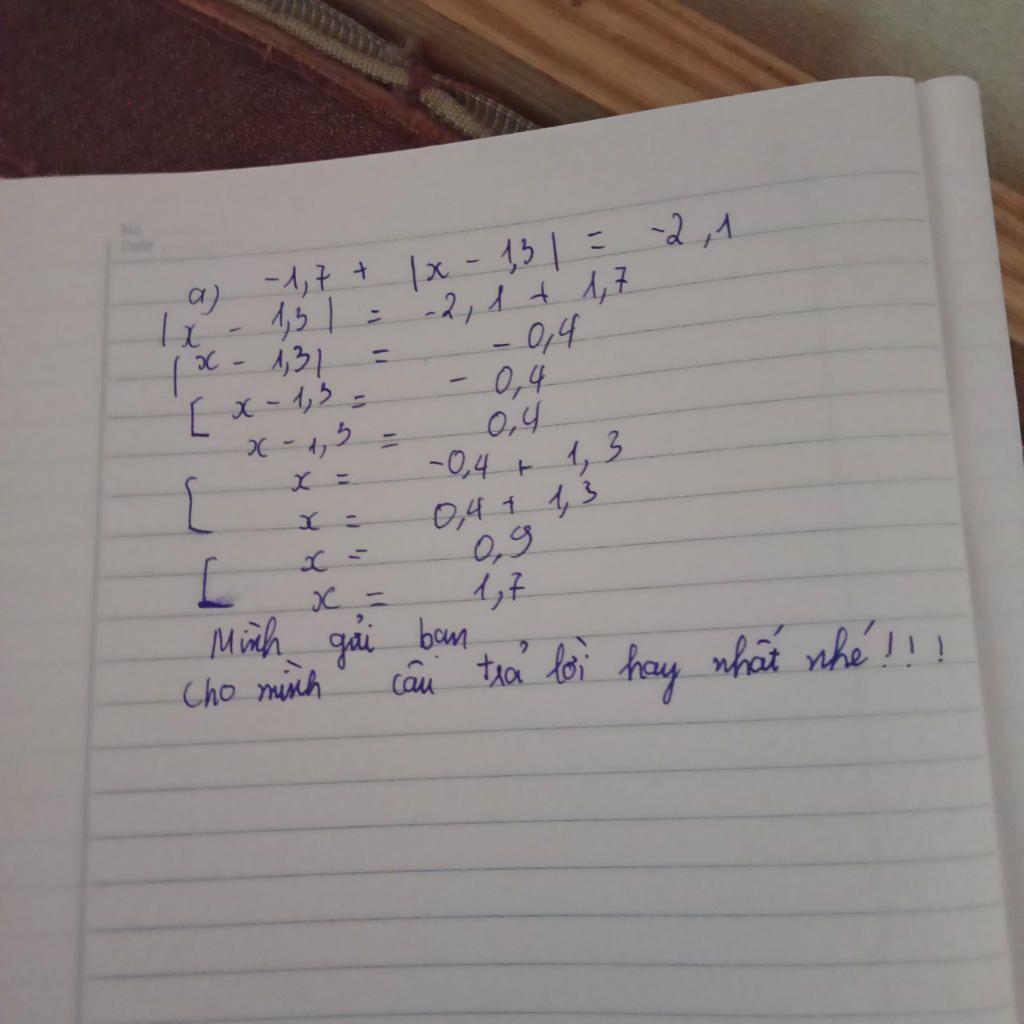 No.
Date
a) -1,7 + |x - 1,3| = -2,1
|x - 1,3| = -2,1 + 1,7
|x - 1,3| = - 0,4
[ x - 1,3 = - 0,4
x - 1,3 = 0,4
[ x = -0,4 + 1,3
x = 0,4 + 1,3
[ x = 0,9
x = 1,7
Mình gửi bạn
Cho mình câu trả lời hay nhất nhé!!!